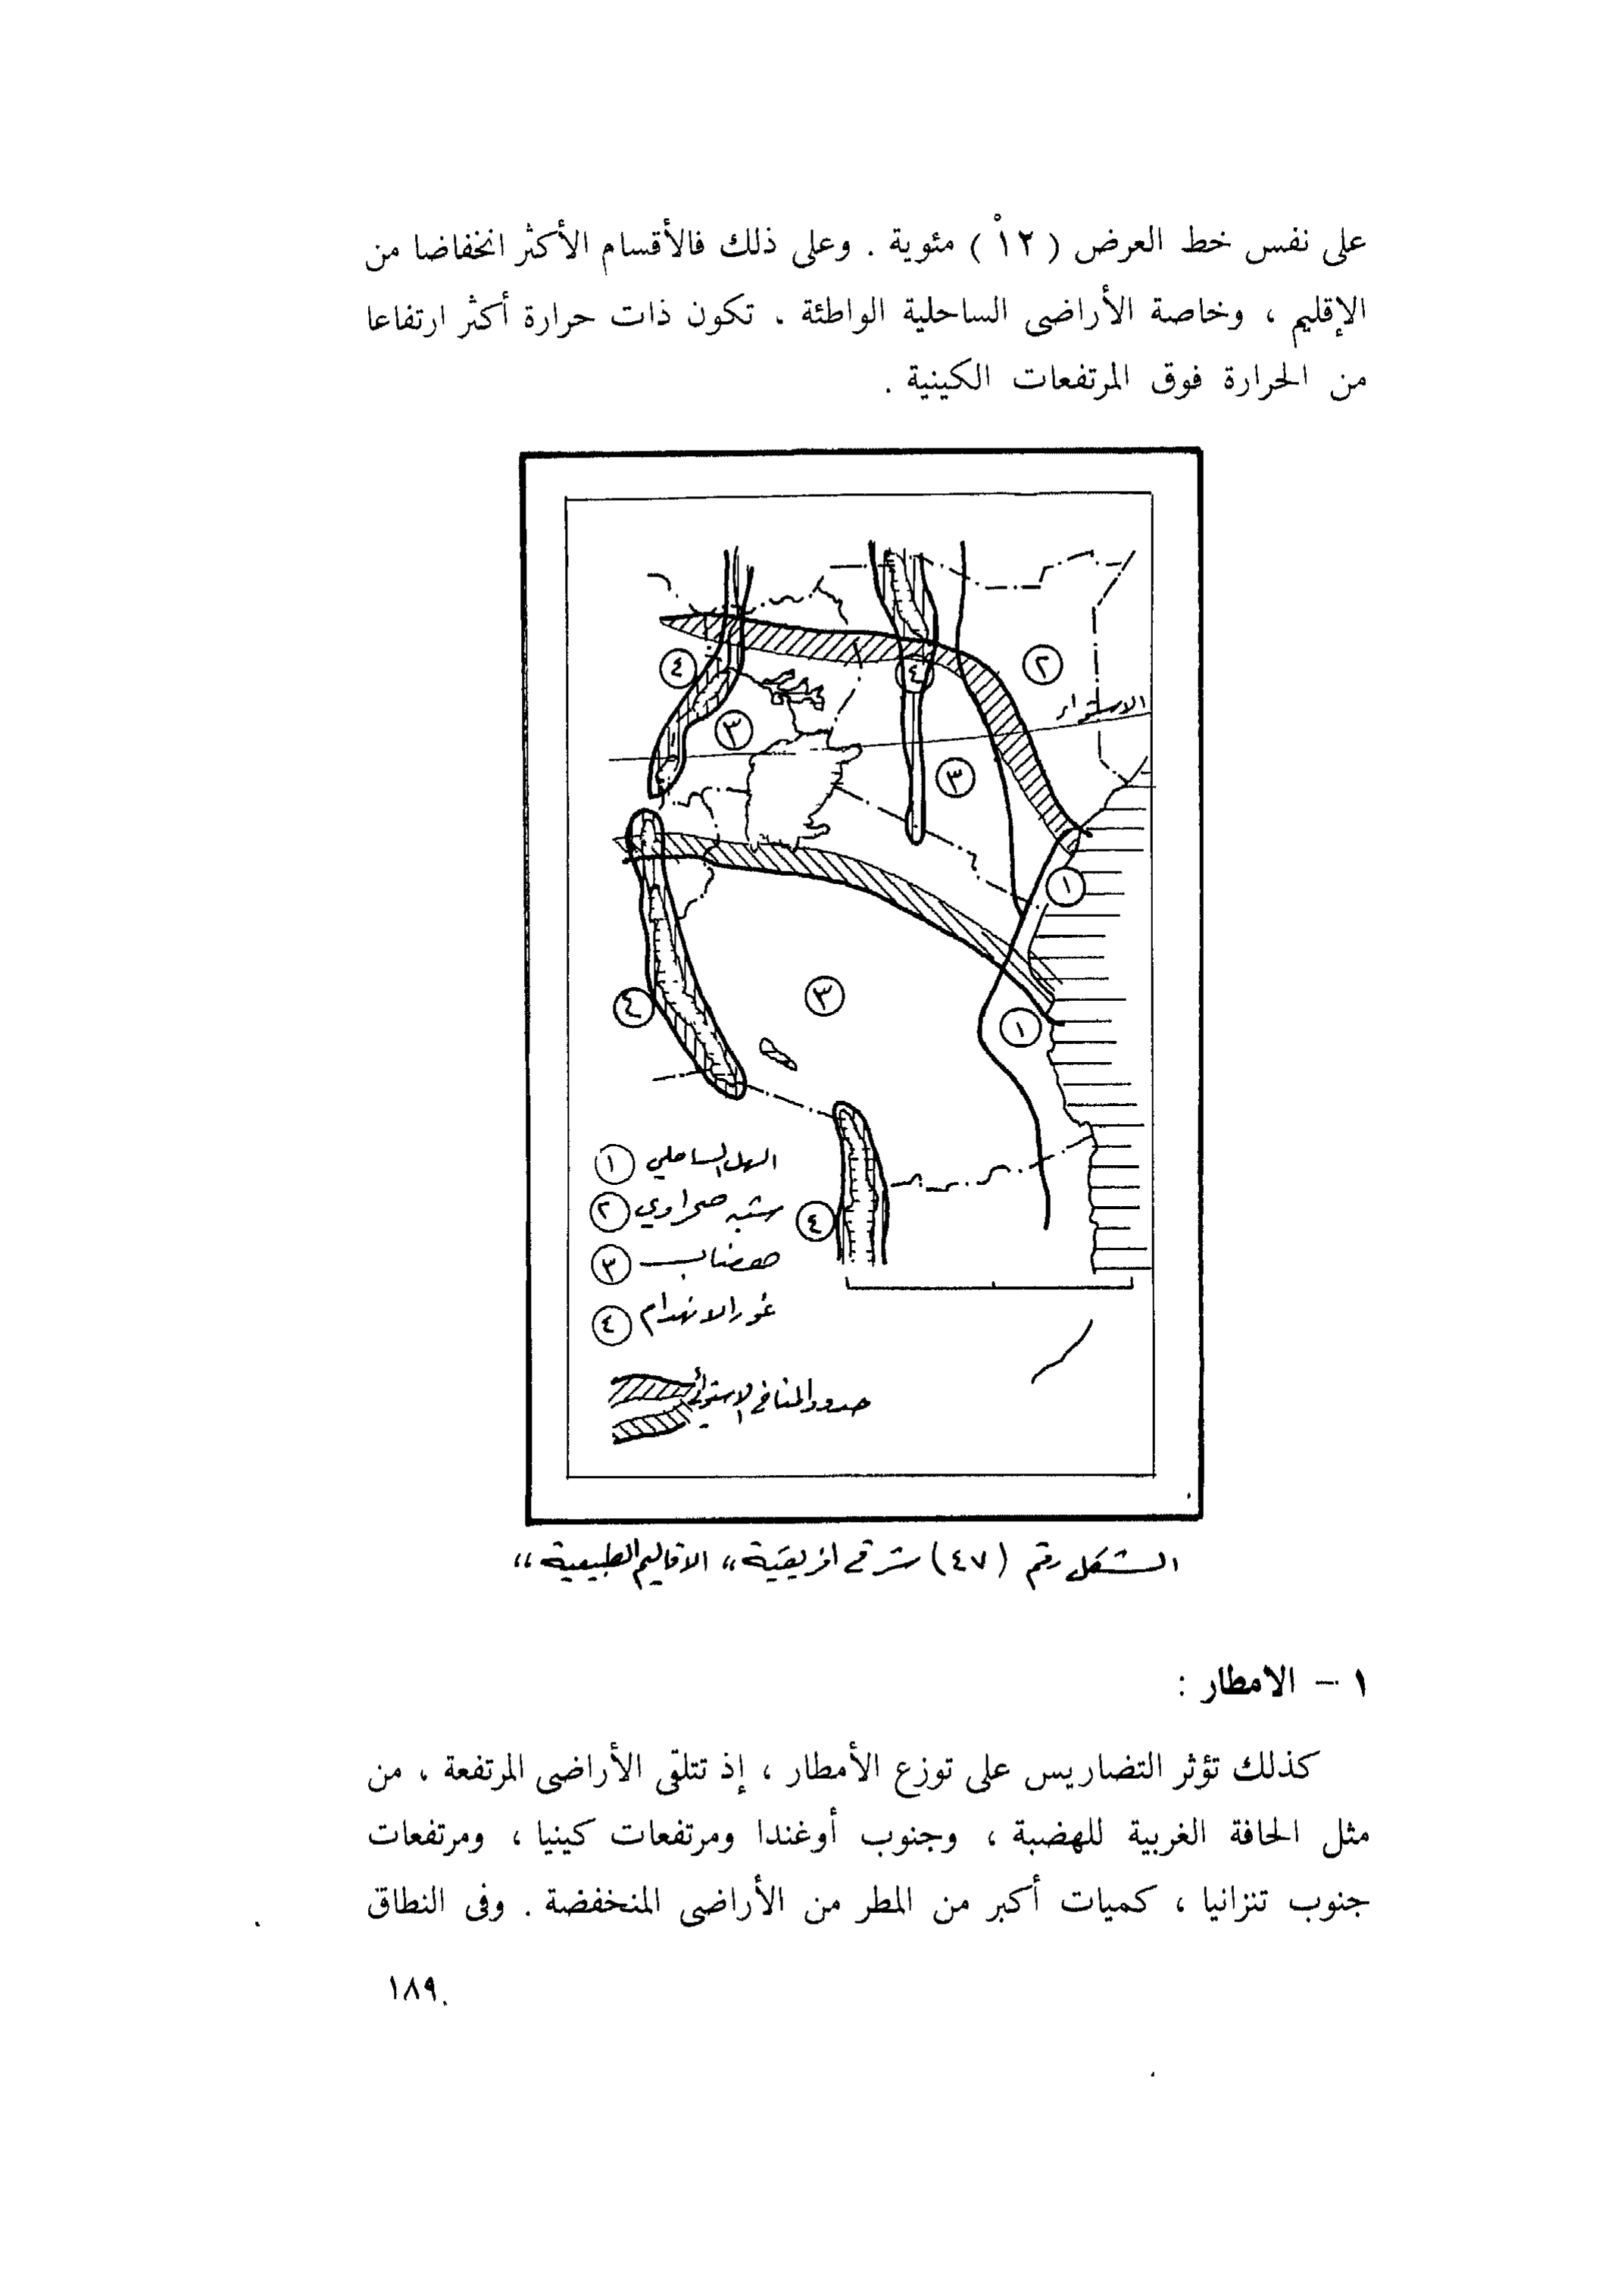 على نفس خط العرض ( ١٢ْ ) مئوية . وعلى ذلك فالأقسام الأكثر انخفاضا من
الإقليم ، وخاصة الأراضى الساحلية الواطئة . تكون ذات حرارة أكثر ارتفاعا
من الحرارة فوق المرتفعات الكينية .
٤
٤
٢
الاستواء
٣
٣
١
٤
٣
١
السهل الساحلي ١
شبه صحراوي ٢
هضاب ٣
غور الانهدام ٤
٤
حدود المناخ الاستوائي
الشكل رقم (٤٧) شرقي افريقية « الاقاليم الطبيعية »
١ - الامطار :
كذلك تؤثر التضاريس على توزع الأمطار ، إذ تتلقى الأراضى المرتفعة ، من
مثل الحافة الغربية للهضبة ، وجنوب أوغندا ومرتفعات كينيا ، ومرتفعات
جنوب تنزانيا ، كميات أكبر من المطر من الأراضى المنخفضة . وفى النطاق
١٨٩